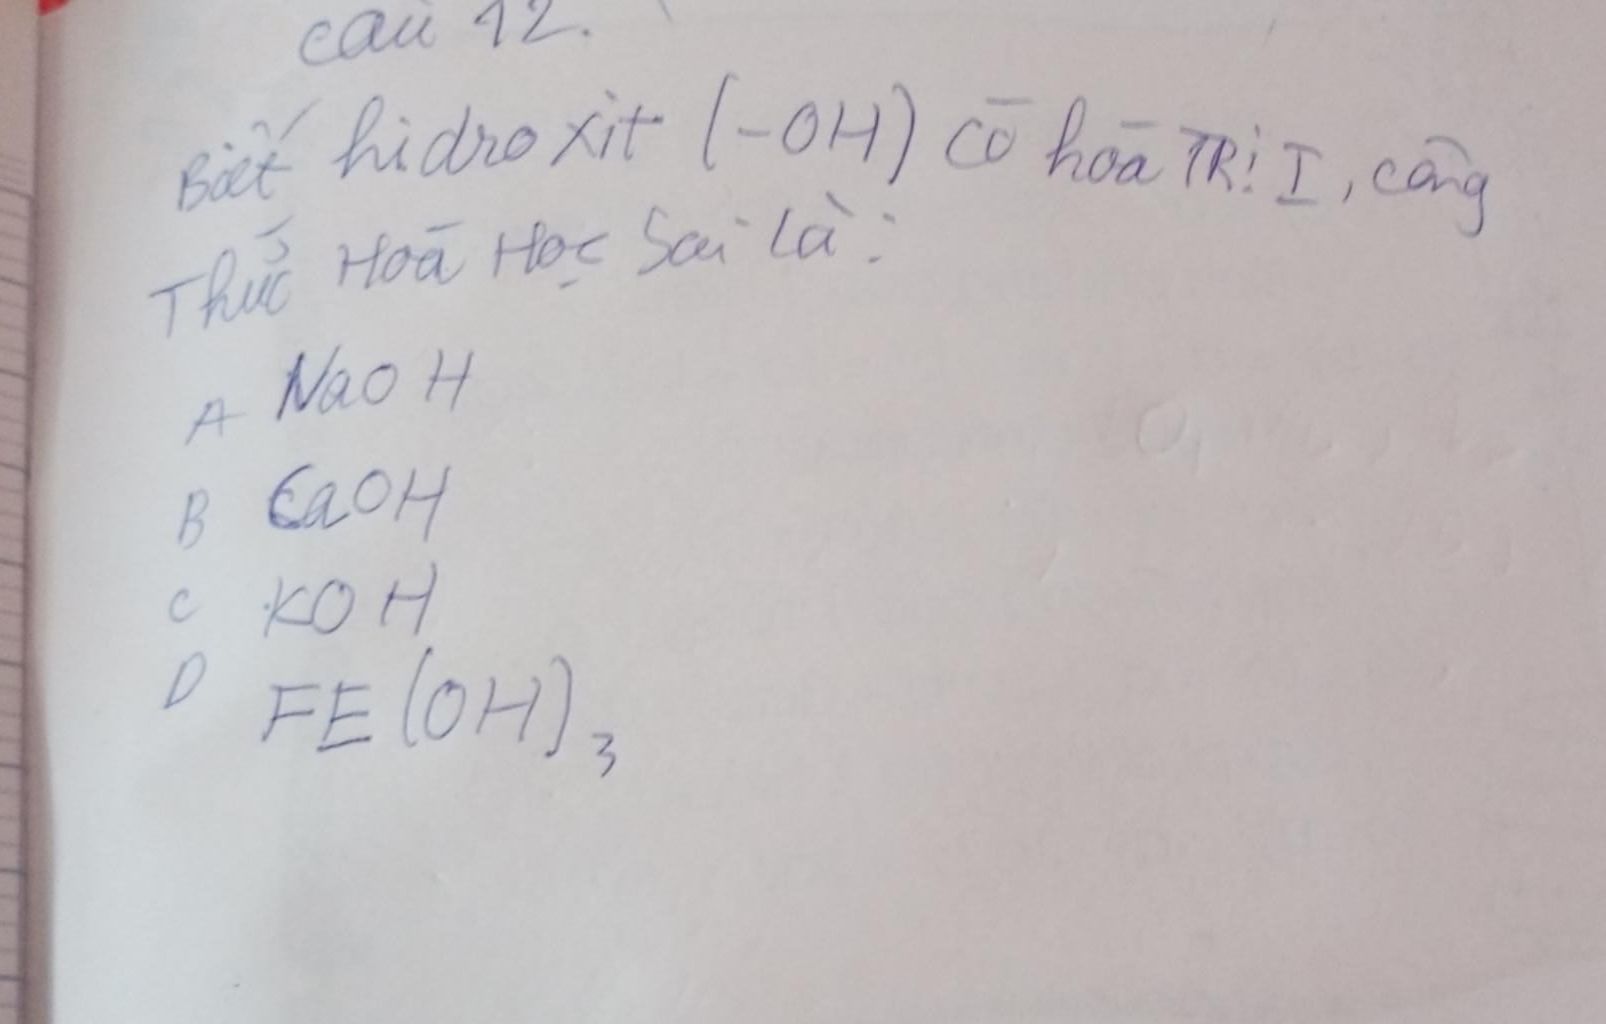 câu 12.
Biết hidroxit (-OH) có hoá TRị I, công
Thức Hoá Học Sai là:
A NaOH
B CaOH
C KOH
D FE(OH)3